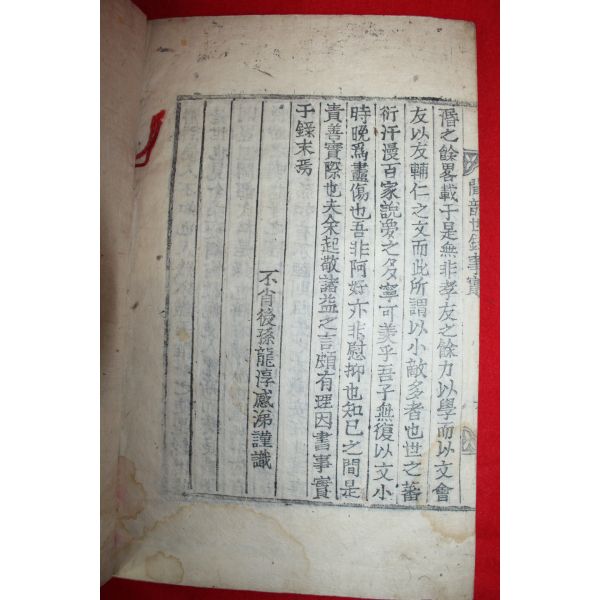 之餘畧載于是無非孝友之餘力以學而以文會
友以友輔仁之文而此所謂以小敵多者也世之蕃
衍汗漫百家說爰之多寧可羡乎吾子無復以文小
時晚爲盡傷也吾非阿好亦非慰抑也知已之間是
責善實際也夫余起敬諸益之言頗有理因書事實
于錄末焉
不肖後孫龍淳感涕謹識
世錄事實